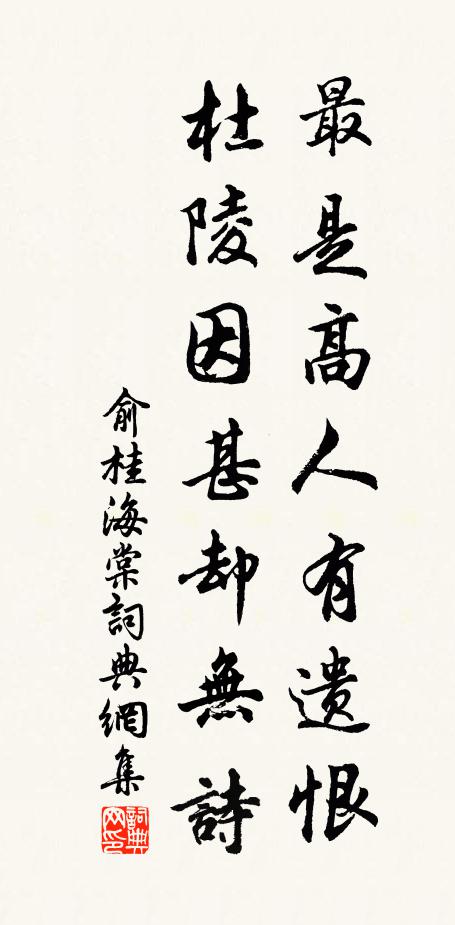 最是高人有遗恨
杜陵因甚却無詩
俞桂海棠詞典網集
詞典网印